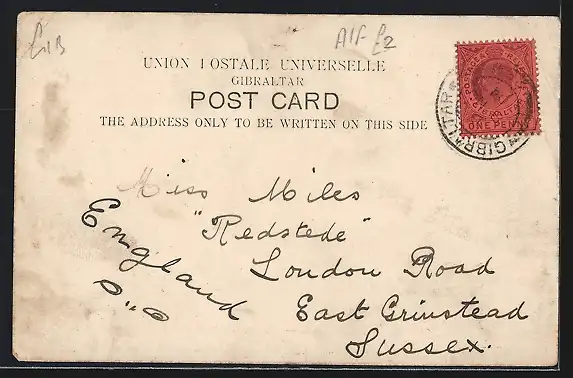 GIB
Alf £2
UNION POSTALE UNIVERSELLE
GIBRALTAR
POST CARD
THE ADDRESS ONLY TO BE WRITTEN ON THIS SIDE
POSTAGE &
ONE PEN
GIBRALTAR
GIBRALTAR
Miss Miles
"Redstede"
London Road
East Grinstead
Sussex.
England